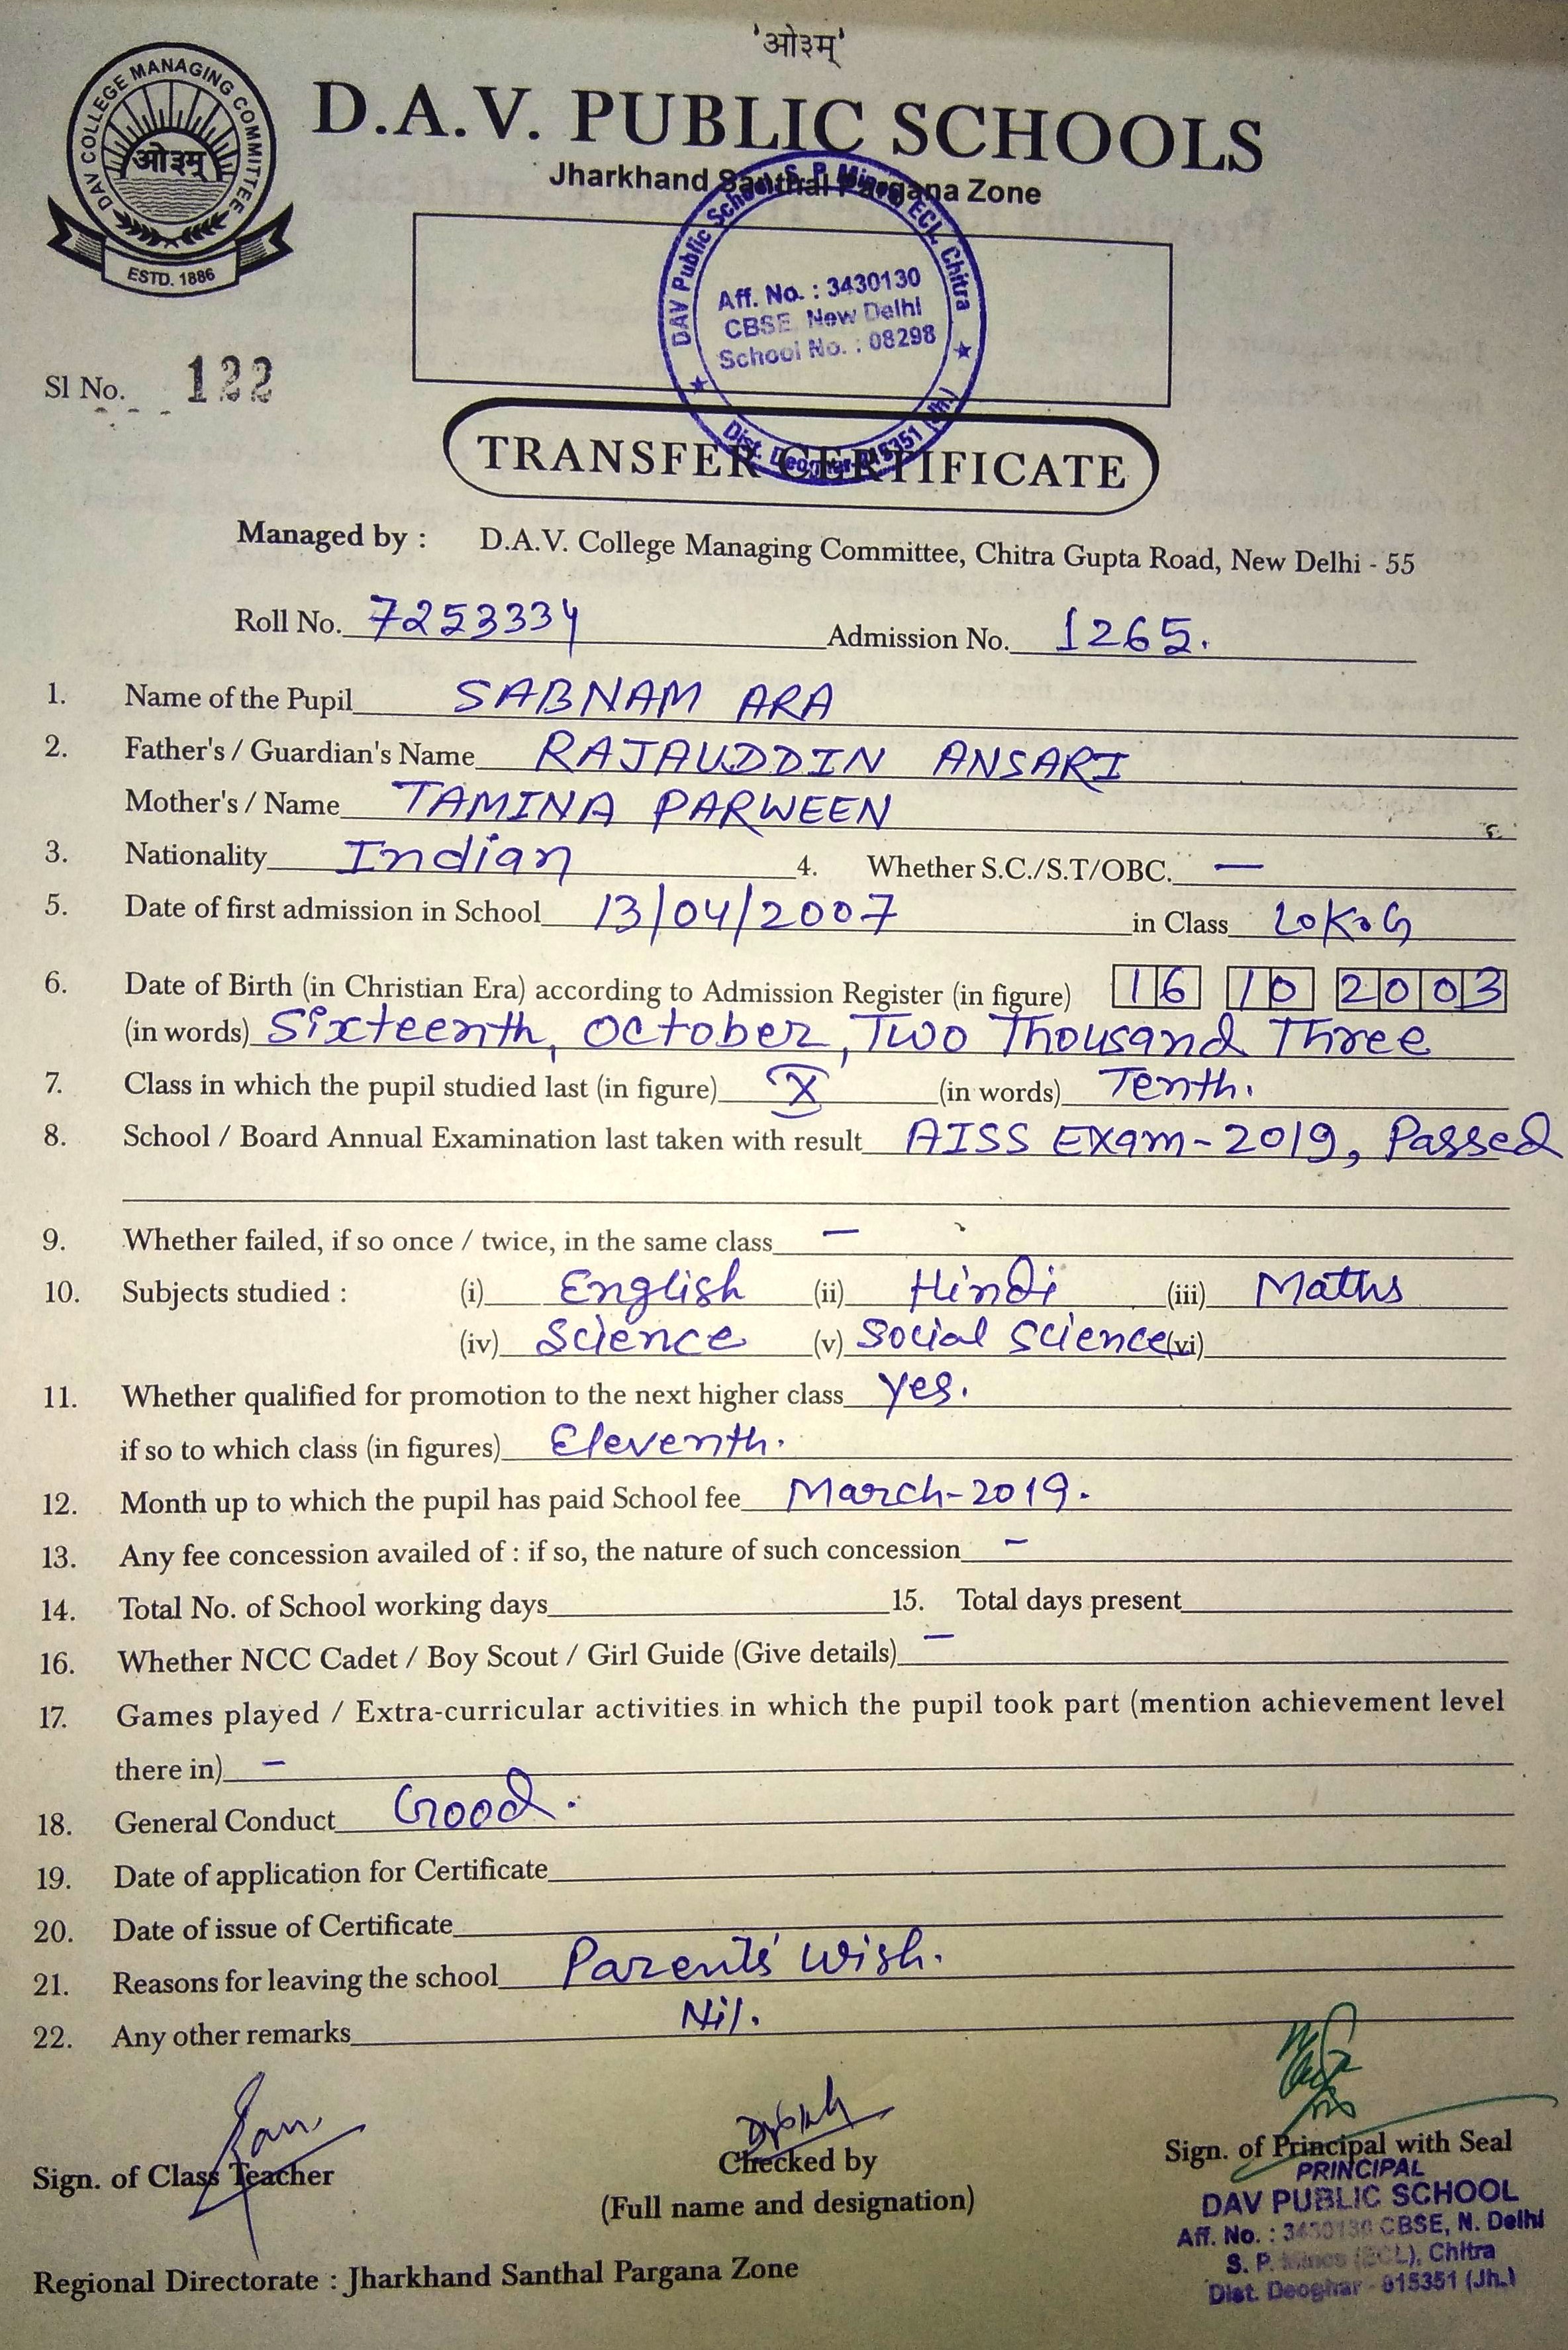 'ओ३म्'
DAV COLLEGE MANAGING COMMITTEE
ओ३म्
ESTD. 1886
D.A.V. PUBLIC SCHOOLS
Jharkhand Santhal Pargana Zone
DAV Public School, S. P. Mines, ECL, Chitra
Aff. No. : 3430130
CBSE, New Delhi
School No. : 08298
Dist. Deoghar-815351 (Jh.)
Sl No. 122
TRANSFER CERTIFICATE
Managed by : D.A.V. College Managing Committee, Chitra Gupta Road, New Delhi - 55
Roll No. 7253334 Admission No. 1265.
1. Name of the Pupil SABNAM ARA
2. Father's / Guardian's Name RAJAUDDIN ANSARI
Mother's / Name TAMINA PARWEEN
3. Nationality Indian 4. Whether S.C./S.T/OBC. —
5. Date of first admission in School 13/04/2007 in Class LoK.G
6. Date of Birth (in Christian Era) according to Admission Register (in figure) 16 10 2003
(in words) Sixteenth, October, Two Thousand Three
7. Class in which the pupil studied last (in figure) X (in words) Tenth.
8. School / Board Annual Examination last taken with result AISS Exam-2019, Passed
9. Whether failed, if so once / twice, in the same class —
10. Subjects studied : (i) English (ii) Hindi (iii) Maths
(iv) Science (v) Social Science (vi)
11. Whether qualified for promotion to the next higher class yes.
if so to which class (in figures) Eleventh.
12. Month up to which the pupil has paid School fee March-2019.
13. Any fee concession availed of : if so, the nature of such concession -
14. Total No. of School working days 15. Total days present
16. Whether NCC Cadet / Boy Scout / Girl Guide (Give details) —
17. Games played / Extra-curricular activities in which the pupil took part (mention achievement level
there in) -
18. General Conduct Good.
19. Date of application for Certificate
20. Date of issue of Certificate
21. Reasons for leaving the school Parents' Wish.
22. Any other remarks Nil.
Sign. of Class Teacher
Checked by
(Full name and designation)
Sign. of Principal with Seal
PRINCIPAL
DAV PUBLIC SCHOOL
Aff. No. : 3430130 CBSE, N. Delhi
S. P. Mines (ECL), Chitra
Dist. Deoghar - 815351 (Jh.)
Regional Directorate : Jharkhand Santhal Pargana Zone